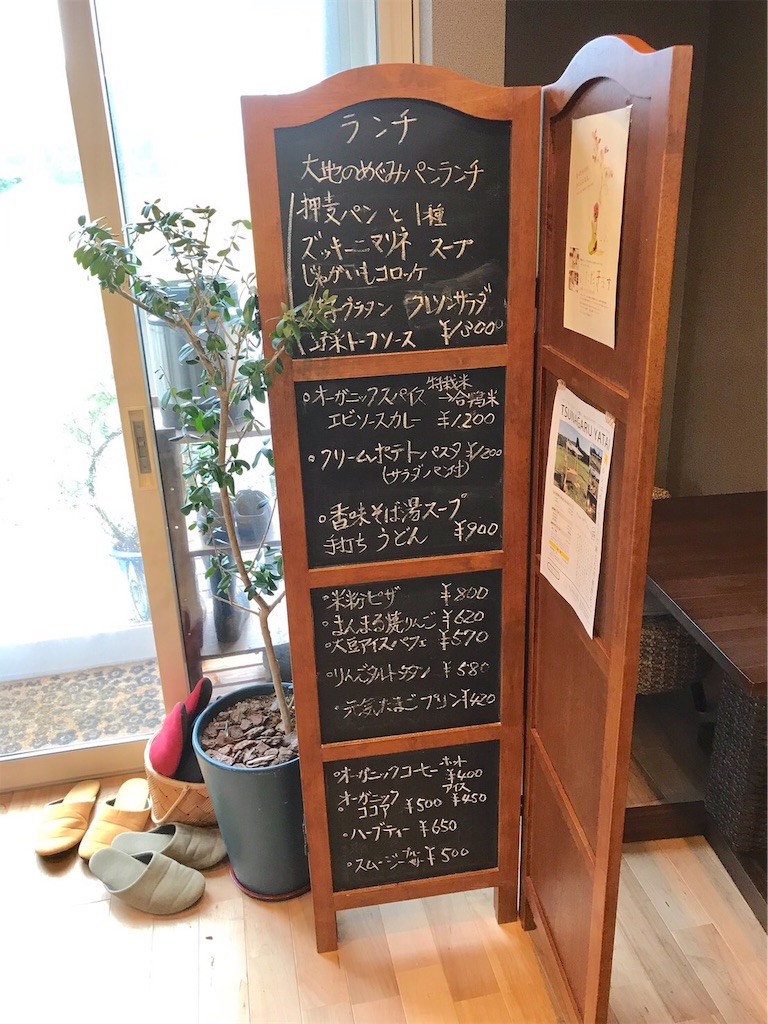 ランチ
大地のめぐみパンランチ
押麦パンと1種
ズッキーニマリネ スープ
じゃがいもコロッケ
グラタン クレソンサラダ
野菜トーフソース ¥1300
・オーガニックスパイス 特栽米
エビソースカレー →合鴨米 ¥1,200
・クリームポテトパスタ ¥1200
(サラダパン付)
・香味そば湯スープ
手打ちうどん ¥900
・米粉ピザ ¥800
・まんまる焼りんご ¥620
・大豆アイスパフェ ¥570
・りんごタルトタタン ¥580
・元気たまごプリン ¥420
・オーガニックコーヒー ホット ¥400
アイス ¥450
・オーガニック
ココア ¥500
・ハーブティー ¥650
・スムージー ブルーベリー ¥500
TSUNAGARU YATAI